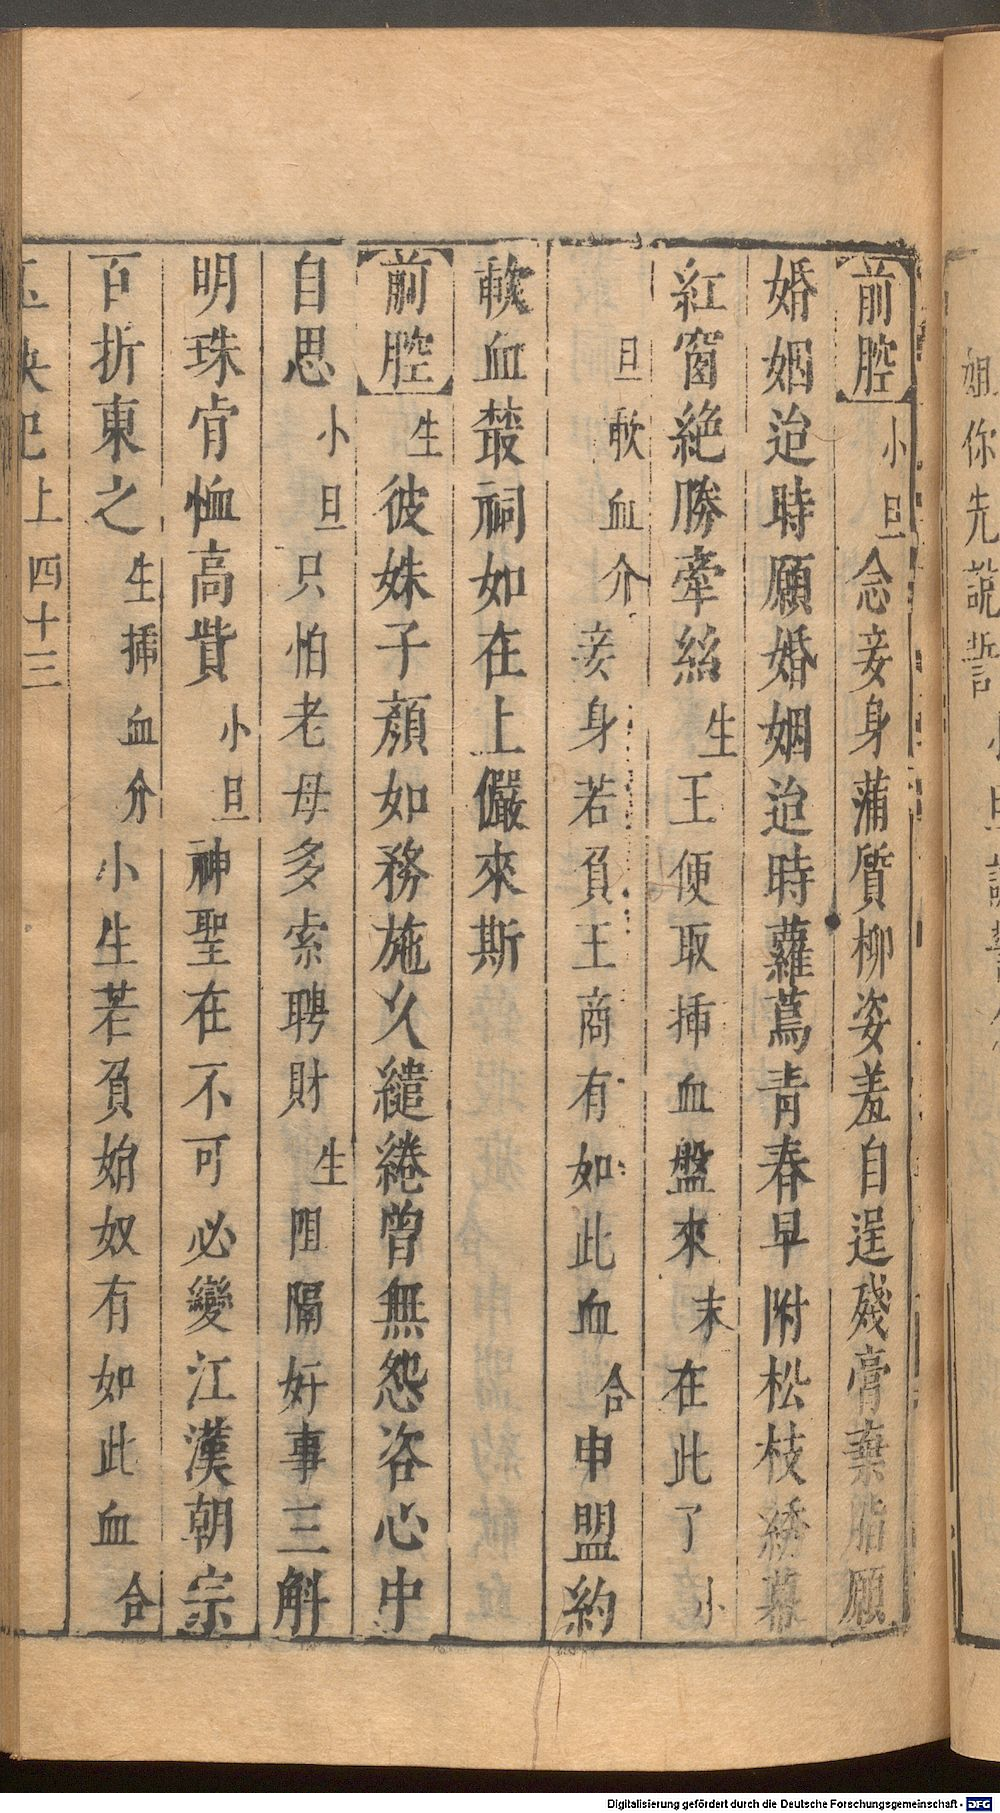 姐你先說誓
前腔小旦念妾身蒲質柳姿羞自逞殘膏棄脂願
婚姻迨時願婚姻迨時蘿蔦青春早附松枝綉幕
紅窗絶勝牽絲生王便取揷血盤來末在此了小
旦歃血介妾身若負王商有如此血合申盟約
歃血䕺祠如在上儼來斯
前腔生彼姝子顏如務施久繾綣曾無怨咨心中
自思小旦只怕老母多索聘財生阻隔好事三斛
明珠肯恤高貲小旦神聖在不可必變江漢朝宗
百折東之生揷血介小生若負始奴有如此血合
上 四十三
Digitalisierung gefördert durch die Deutsche Forschungsgemeinschaft - DFG